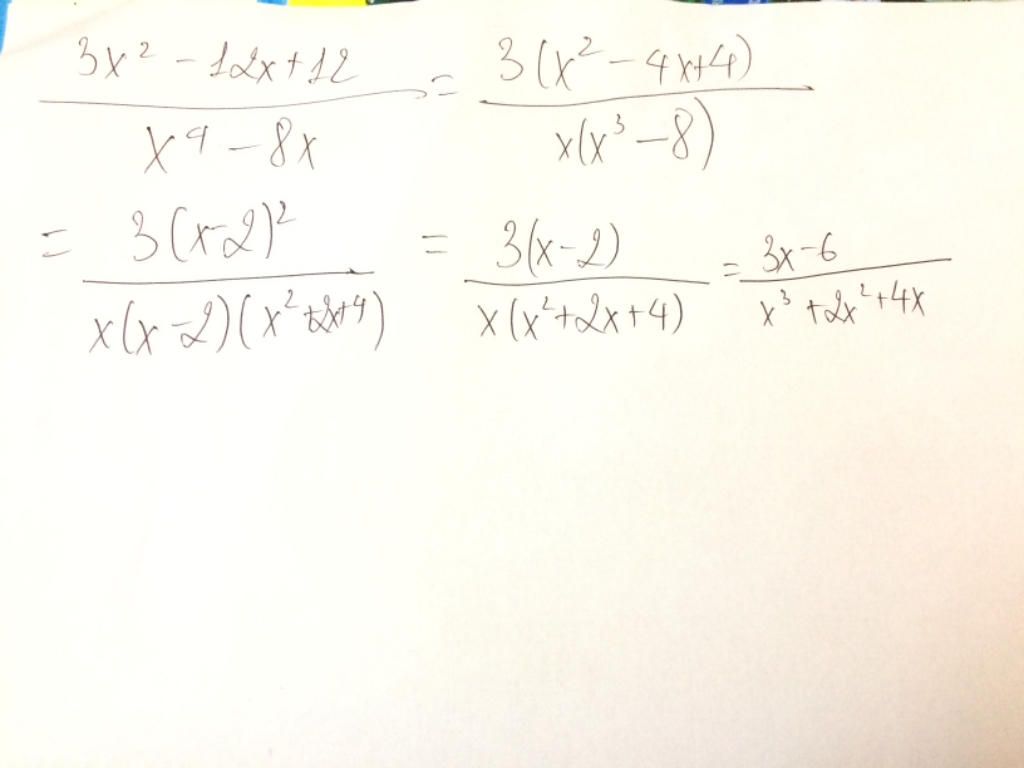 (3x² - 12x + 12)/(x⁴ - 8x) = 3(x² - 4x + 4)/(x(x³ - 8))
= 3(x - 2)²/(x(x - 2)(x² + 2x + 4)) = 3(x - 2)/(x(x² + 2x + 4)) = (3x - 6)/(x³ + 2x² + 4x)